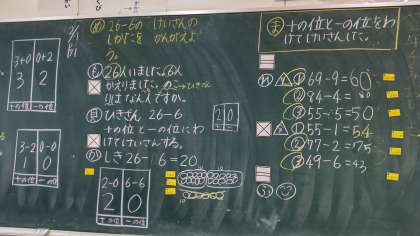 3+0 0+2
3 2
十の位 一の位
3-2 0-0
1 0
十の位 一の位
め 26-6の けいさんの
しかたを かんがえよ
う。
も 26人いました。6人
かえりました。の→ひきざん
りはなんんですか。
見 ひきざん 26-6
十の位と一の位にわ
けてけいさんする。
2 0
か しき 26-6=20
2-0 6-6
2 0
十の位 一の位
ま 十の位と一の位をわ
けてけいさんした。
れ 1 69-9=60
2 84-4=80
3 55-5=50
1 55-1=54
2 77-2=75
3 49-6=43
ふ